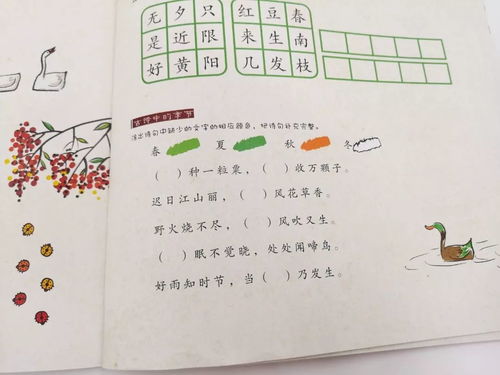 无夕只
是近限
好黄阳
红豆春
来生南
几发枝
古诗中的季节
涂出诗句中缺少的文字的相应颜色，把诗句补充完整。
春 夏 秋 冬
（ ）种一粒粟，（ ）收万颗子。
迟日江山丽，（ ）风花草香。
野火烧不尽，（ ）风吹又生。
（ ）眠不觉晓，处处闻啼鸟。
好雨知时节，当（ ）乃发生。